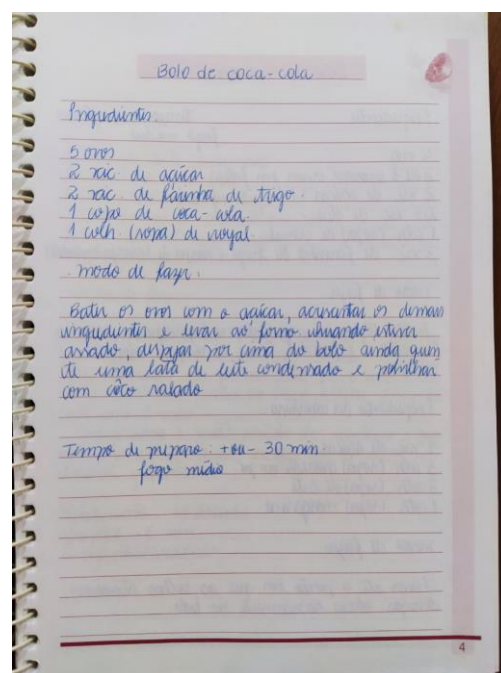 Bolo de coca-cola
Ingredientes
5 ovos
2 xíc. de açúcar
2 xac. de farinha de trigo.
1 copo de coca-cola.
1 colh (sopa) de royal
. modo de fazer.
Bater os ovos com o açúcar, acrescentar os demais
ingredientes e levar ao forno quando estiver
assado, despejar por cima do bolo ainda quen
te uma lata de leite condensado e polvilhar
com côco ralado
Tempo de preparo: + ou - 30 min.
fogo médio
4